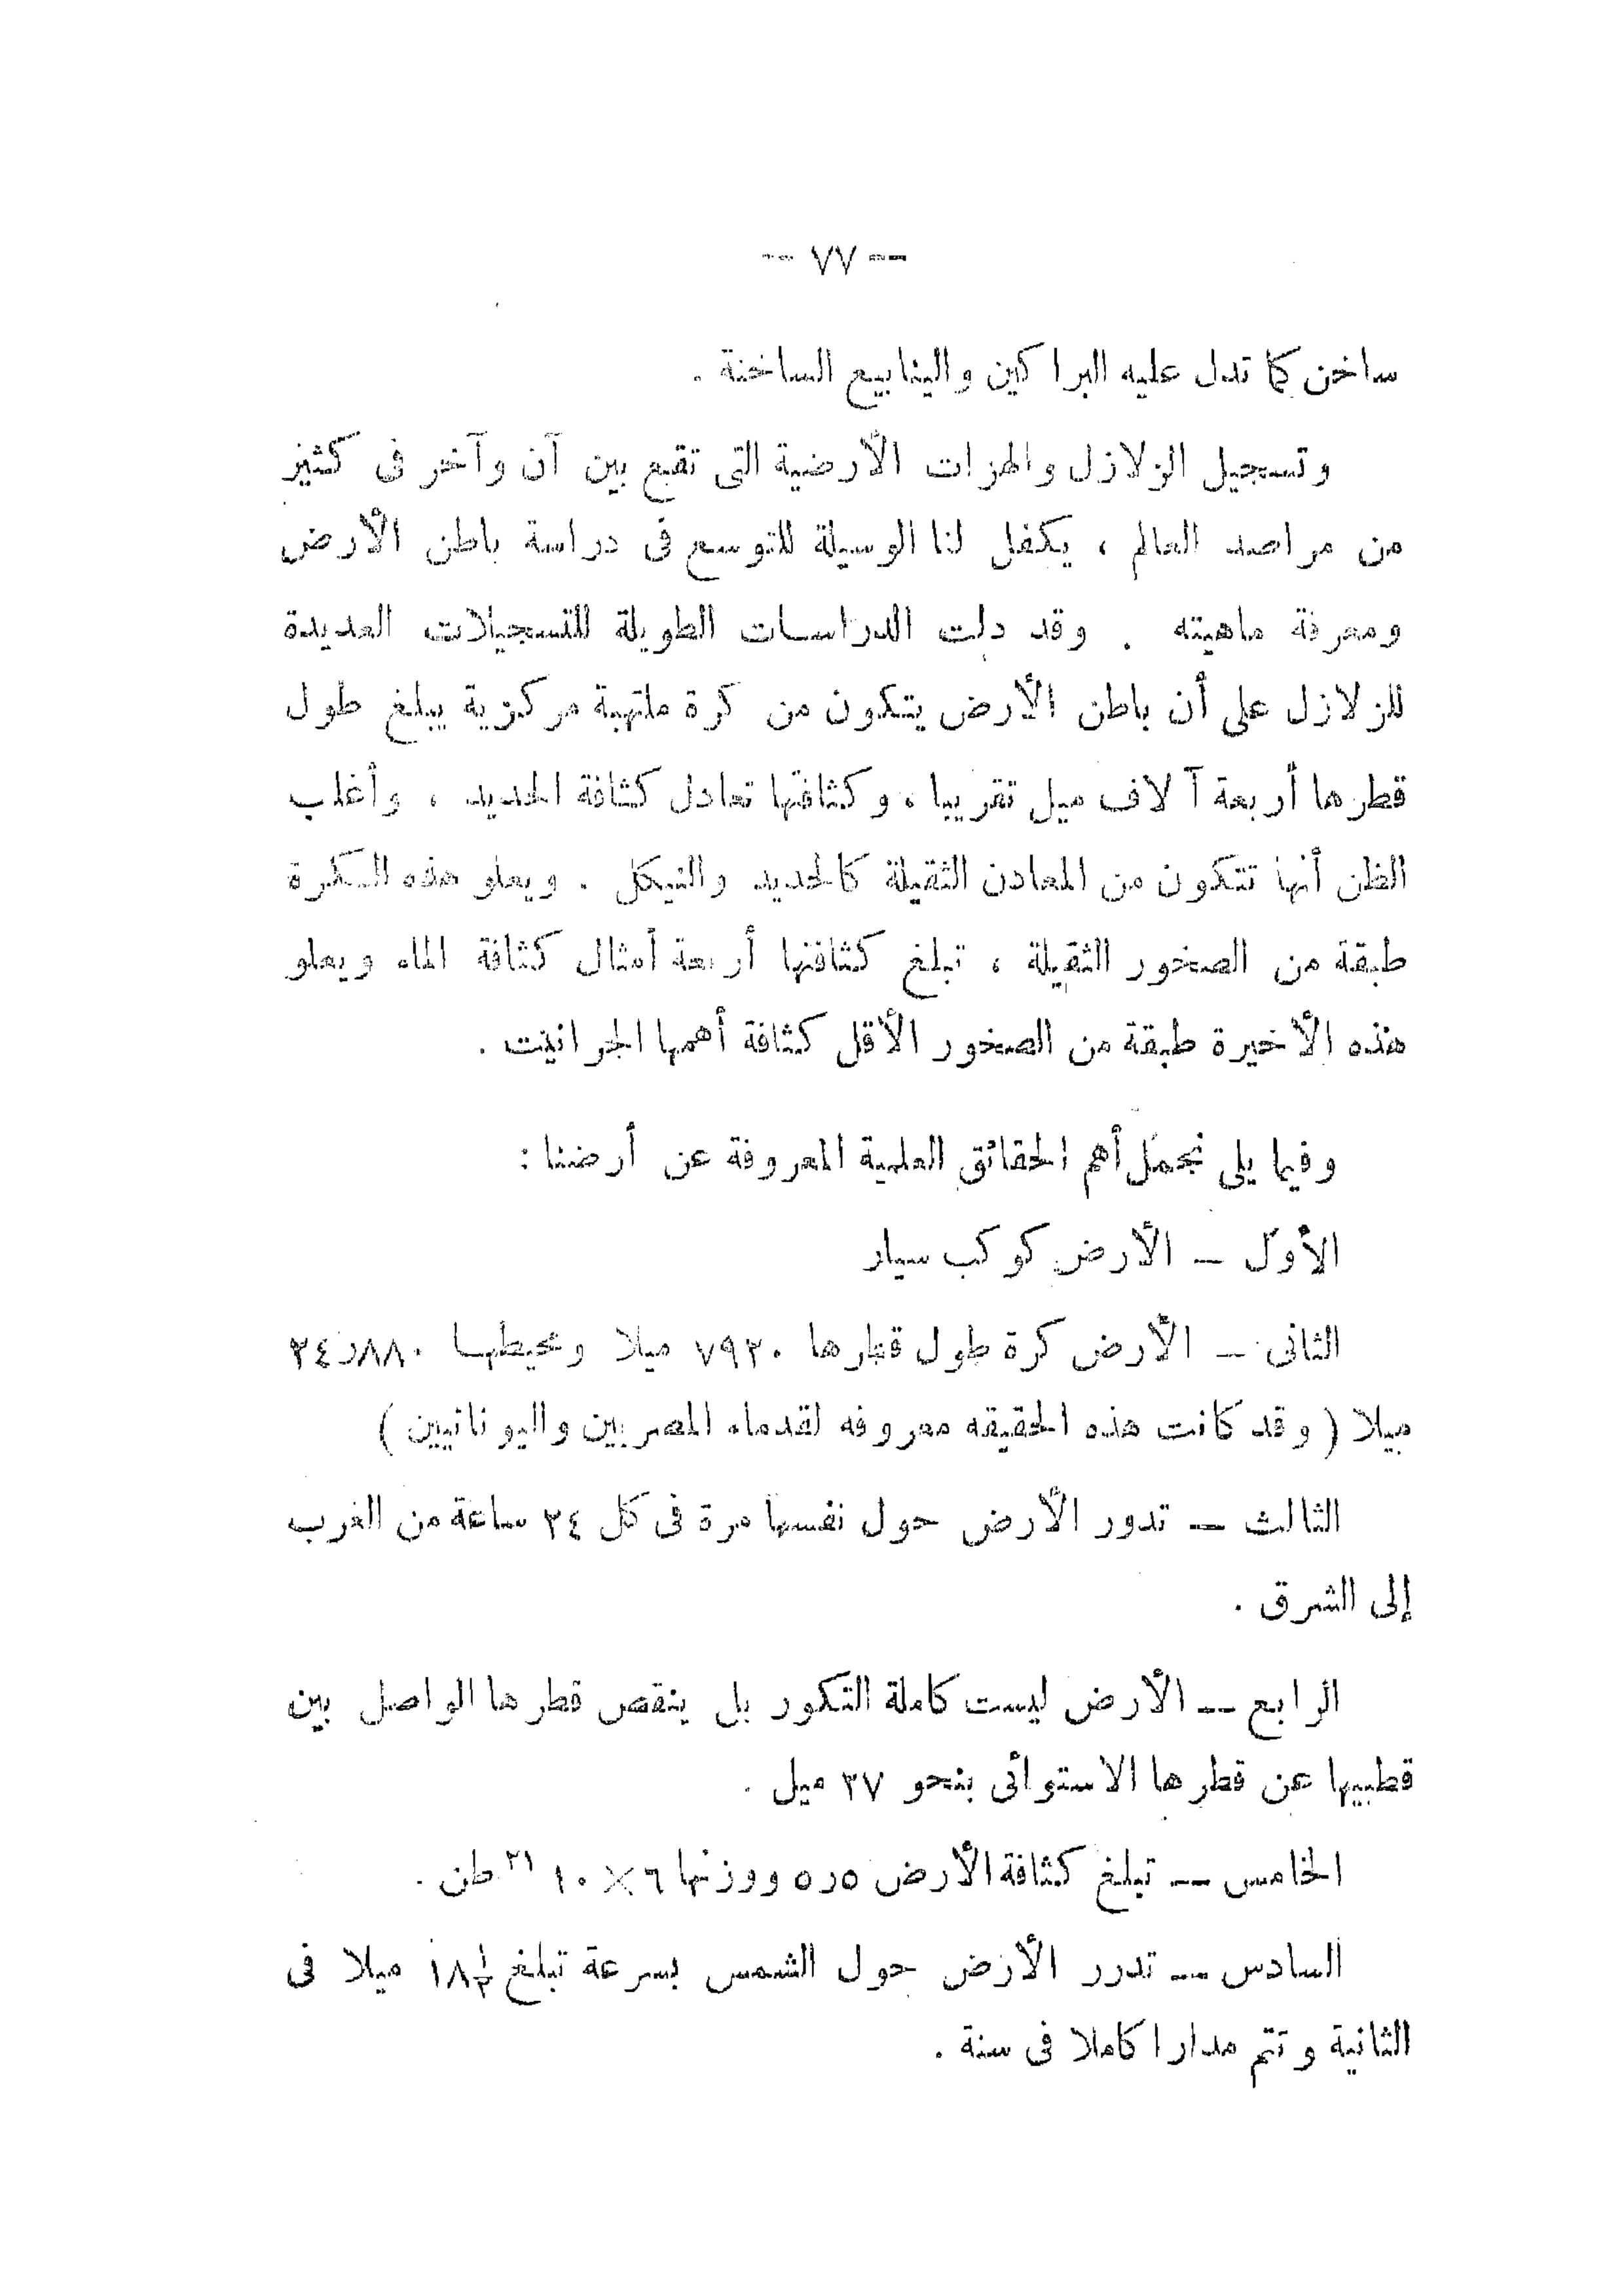 -- ٧٧ --
ساخن كما تدل عليه البراكين والينابيع الساخنة .
وتسجيل الزلازل والهزات الأرضية التى تقع بين آن وآخر فى كثير
من مراصد العالم ، يكفل لنا الوسيلة للتوسع فى دراسة باطن الأرض
ومعرفة ماهيته . وقد دلت الدراسات الطويلة للتسجيلات العديدة
للزلازل على أن باطن الأرض يتكون من كرة ملتهبة مركزية يبلغ طول
قطرها أربعة آلاف ميل تقريبا ، وكثافتها تعادل كثافة الحديد ، وأغلب
الظن أنها تتكون من المعادن الثقيلة كالحديد والنيكل . ويعلو هذه الكرة
طبقة من الصخور الثقيلة ، تبلغ كثافتها أربعة أمثال كثافة الماء ويعلو
هذه الأخيرة طبقة من الصخور الأقل كثافة أهمها الجرانيت .
وفيما يلى نجمل أهم الحقائق العلمية المعروفة عن أرضنا :
الأول — الأرض كوكب سيار
الثانى — الأرض كرة طول قطرها ٧٩٢٠ ميلا ومحيطها ٢٤ر٨٨٠
ميلا ( وقد كانت هذه الحقيقه معروفه لقدماء المصريين واليونانيين )
الثالث — تدور الأرض حول نفسها مرة فى كل ٢٤ ساعة من الغرب
إلى الشرق .
الرابع — الأرض ليست كاملة التكور بل ينقص قطرها الواصل بين
قطبيها عن قطرها الاستوائى بنحو ٢٧ ميل .
الخامس — تبلغ كثافة الأرض ٥ر٥ ووزنها ٦ × ١٠ ٢١ طن .
السادس — تدرر الأرض حول الشمس بسرعة تبلغ ١٨½ ميلا فى
الثانية وتتم مدارا كاملا فى سنة .